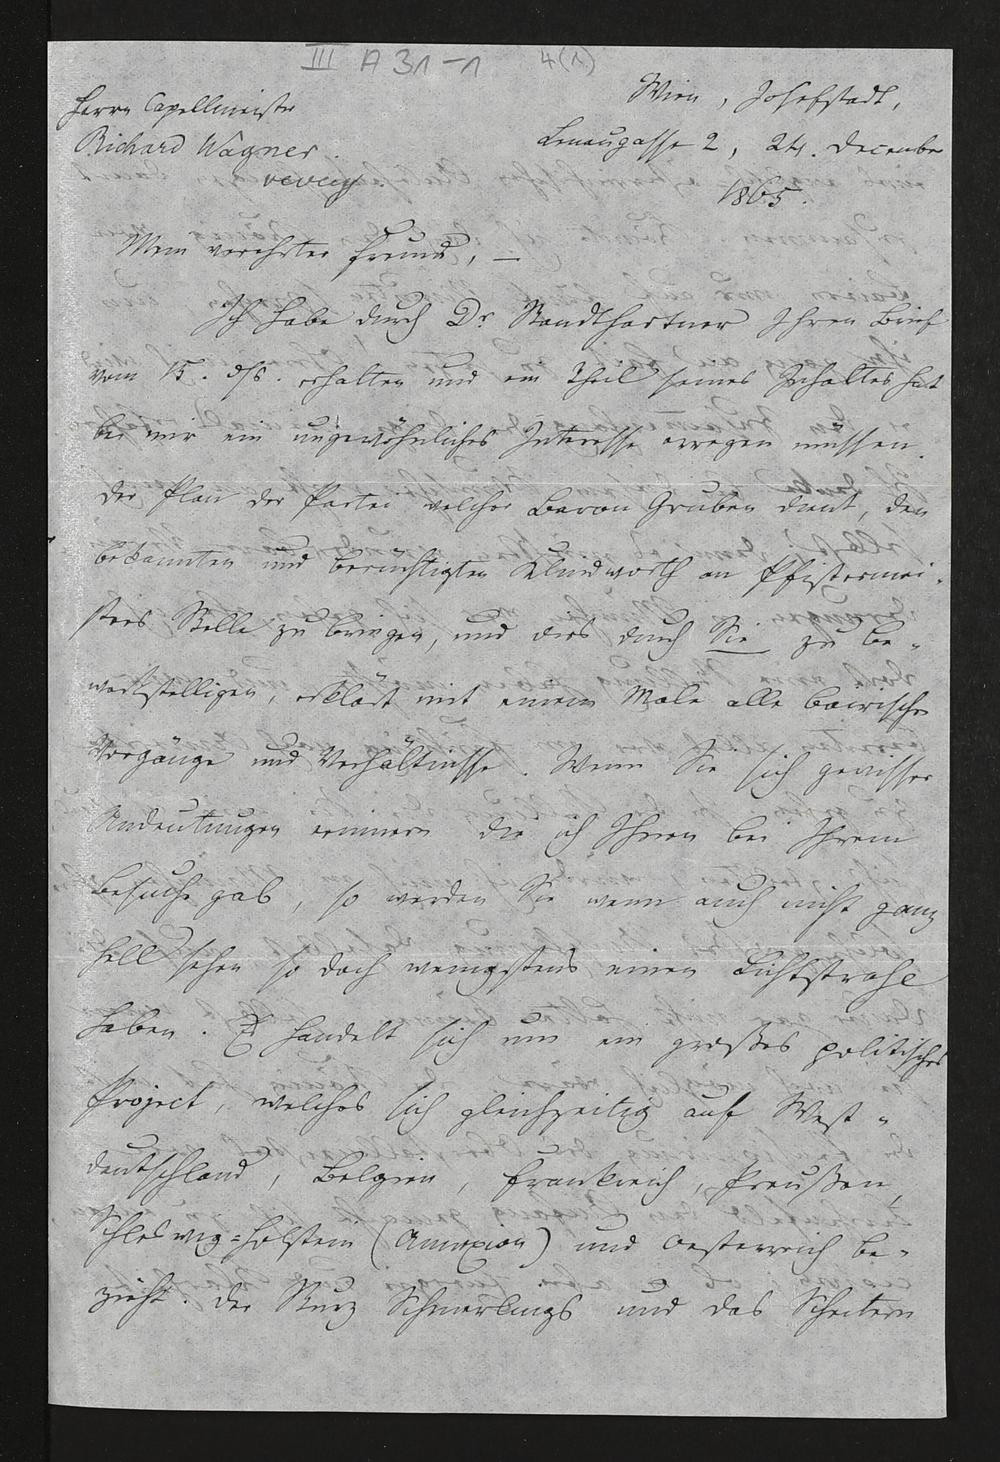 III A 31-1 4(1)
Herrn Capellmeister
Richard Wagner.
Vevey.
Wien, Josefstadt,
Lenaugasse 2, 24. December
1865.
Mein verehrter Freund, —
Ich habe durch Dr Standthartner Ihren Brief
vom 15. ds. erhalten und ein Theil seines Inhaltes hat
bei mir ein ungewöhnliches Interesse erregen müssen.
Der Plan der Partei welcher Baron Gruben dient, den
bekannten und berüchtigten Klindworth an Pfistermei-
sters Stelle zu bringen, und dies durch Sie zu be-
werkstelligen, erklärt mit einem Male alle bairischen
Vorgänge und Verhältnisse. Wenn Sie sich gewisser
Andeutungen erinnern die ich Ihnen bei Ihrem
Besuche gab, so werden Sie wenn auch nicht ganz
hell sehen so doch wenigstens einen Lichtstrahl
haben. Es handelt sich um ein großes politisches
Project, welches sich gleichzeitig auf West-
deutschland, Belgien, Frankreich, Preußen,
Schleswig-Holstein (Annexion) und Oesterreich be-
zieht. Der Sturz Schmerlings und das Scheitern